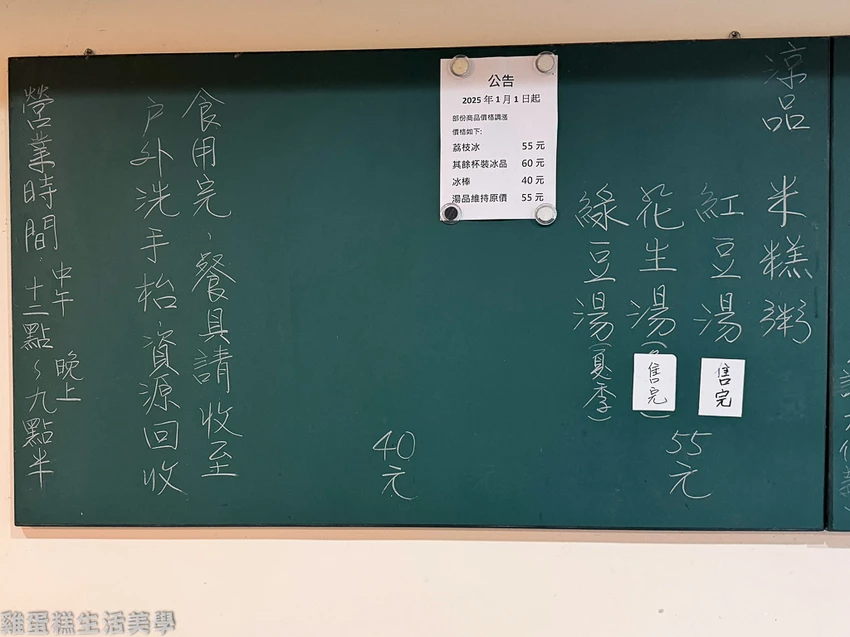 涼品
米糕粥
紅豆湯
售完
花生湯(
售完
)
綠豆湯(夏季)
55元
公告
2025年1月1日起
部份商品價格調漲
價格如下:
荔枝冰 55元
其餘杯裝冰品 60元
冰棒 40元
湯品維持原價 55元
40元
食用完、餐具請收至
戶外洗手枱資源回收
營業時間:中午十二點~晚上九點半
雞蛋糕生活美學